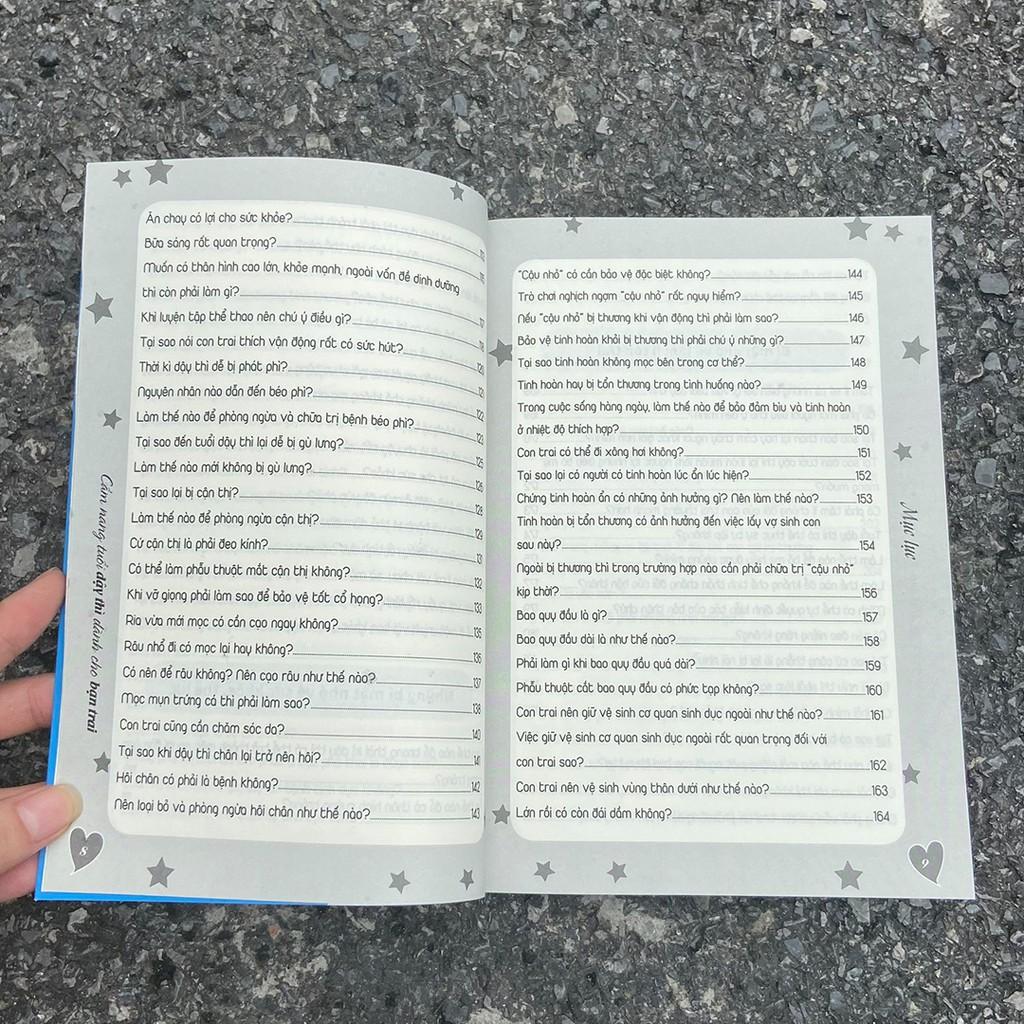 Ăn chay có lợi cho sức khỏe?
Bữa sáng rất quan trọng? 113
Muốn có thân hình cao lớn, khỏe mạnh, ngoài vấn đề dinh dưỡng 115
thì còn phải làm gì? 117
Khi luyện tập thể thao nên chú ý điều gì? 118
Tại sao nói con trai thích vận động rất có sức hút? 120
Thời kì dậy thì dễ bị phát phì? 121
Nguyên nhân nào dẫn đến béo phì? 122
Làm thế nào để phòng ngừa và chữa trị bệnh béo phì? 123
Tại sao đến tuổi dậy thì lại dễ bị gù lưng? 125
Làm thế nào mới không bị gù lưng? 126
Tại sao lại bị cận thị? 128
Làm thế nào để phòng ngừa cận thị? 129
Cứ cận thị là phải đeo kính? 131
Có thể làm phẫu thuật mắt cận thị không? 132
Khi vỡ giọng phải làm sao để bảo vệ tốt cổ họng? 133
Ria vừa mới mọc có cần cạo ngay không? 135
Râu nhổ đi có mọc lại hay không? 136
Có nên để râu không? Nên cạo râu như thế nào? 137
Mọc mụn trứng cá thì phải làm sao? 138
Con trai cũng cần chăm sóc da? 140
Tại sao khi dậy thì chân lại trở nên hôi? 141
Hôi chân có phải là bệnh không? 142
Nên loại bỏ và phòng ngừa hôi chân như thế nào? 143
Cẩm nang tuổi dậy thì dành cho bạn trai
8
"Cậu nhỏ" có cần bảo vệ đặc biệt không? 144
Trò chơi nghịch ngợm "cậu nhỏ" rất nguy hiểm? 145
Nếu "cậu nhỏ" bị thương khi vận động thì phải làm sao? 146
Bảo vệ tinh hoàn khỏi bị thương thì phải chú ý những gì? 147
Tại sao tinh hoàn không mọc bên trong cơ thể? 148
Tinh hoàn hay bị tổn thương trong tình huống nào? 149
Trong cuộc sống hàng ngày, làm thế nào để bảo đảm bìu và tinh hoàn
ở nhiệt độ thích hợp? 150
Con trai có thể đi xông hơi không? 151
Tại sao lại có người có tinh hoàn lúc ẩn lúc hiện? 152
Chứng tinh hoàn ẩn có những ảnh hưởng gì? Nên làm thế nào? 153
Tinh hoàn bị tổn thương có ảnh hưởng đến việc lấy vợ sinh con
sau này? 154
Ngoài bị thương thì trong trường hợp nào cần phải chữa trị "cậu nhỏ"
kịp thời? 156
Bao quy đầu là gì? 157
Bao quy đầu dài là như thế nào? 158
Phải làm gì khi bao quy đầu quá dài? 159
Phẫu thuật cắt bao quy đầu có phức tạp không? 160
Con trai nên giữ vệ sinh cơ quan sinh dục ngoài như thế nào? 161
Việc giữ vệ sinh cơ quan sinh dục ngoài rất quan trọng đối với
con trai sao? 162
Con trai nên vệ sinh vùng thân dưới như thế nào? 163
Lớn rồi có còn đái dầm không? 164
Mục lục
9